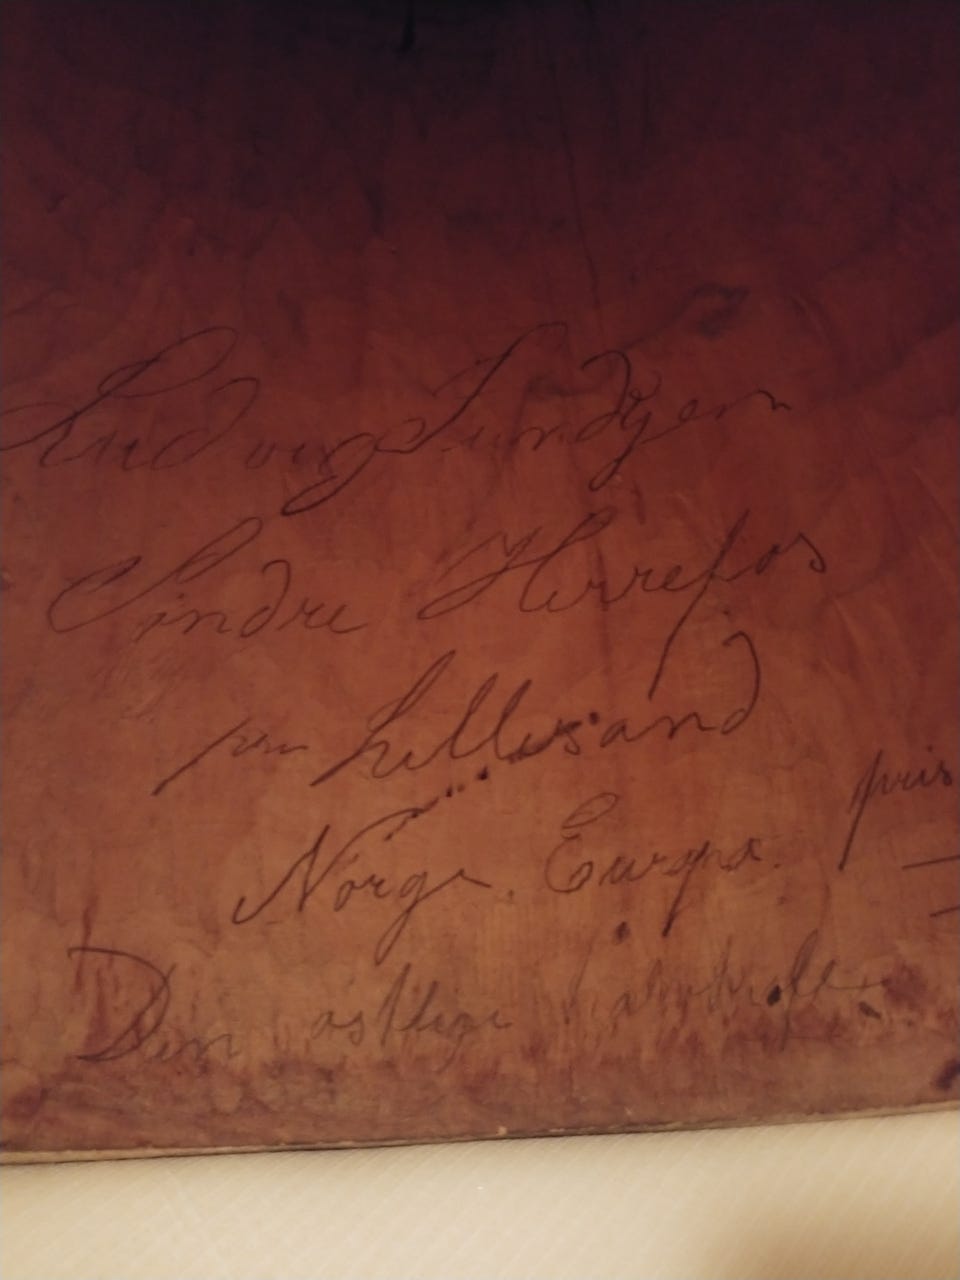 Ludvig Sundgen
Sindre Herrefos
pr Lillesand
Norge. Europa. pris
Den østlige halvkulle